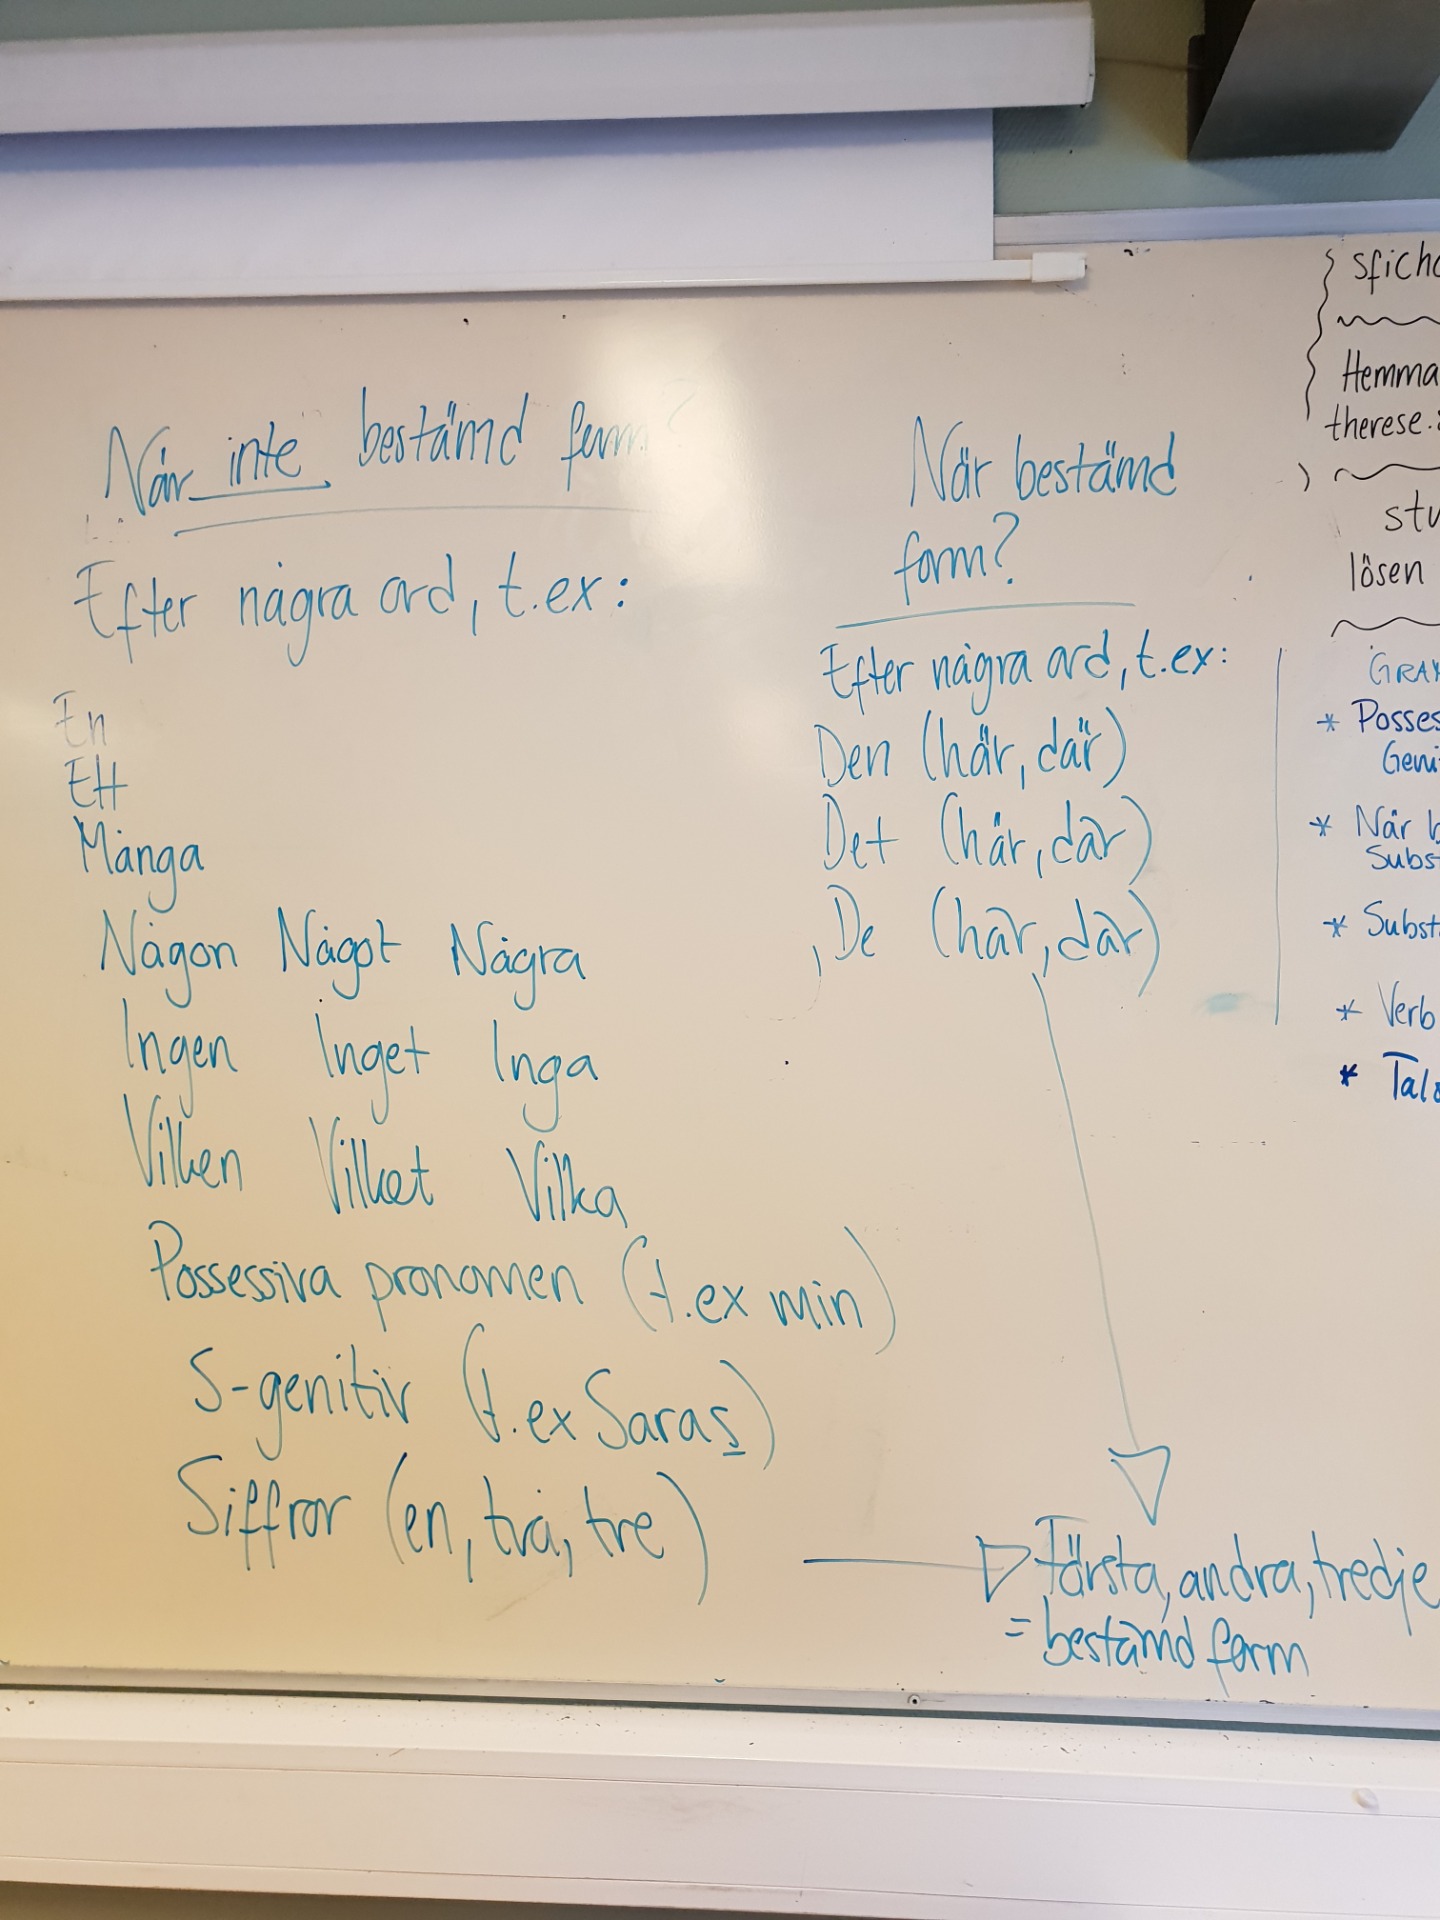 När inte bestämd form?
Efter några ord, t.ex:
En
Ett
Många
Någon Något Några
Ingen Inget Inga
Vilken Vilket Vilka
Possessiva pronomen (t.ex min)
S-genitiv (t.ex Saras)
Siffror (en, två, tre)
När bestämd
form?
Efter några ord, t.ex:
Den (här, där)
Det (här, där)
De (här, där)
Första, andra, tredje
= bestämd form
Hemma
therese.
lösen
* Posses
Geni
* När b
Subs
* Subst
* Verb
* Tal